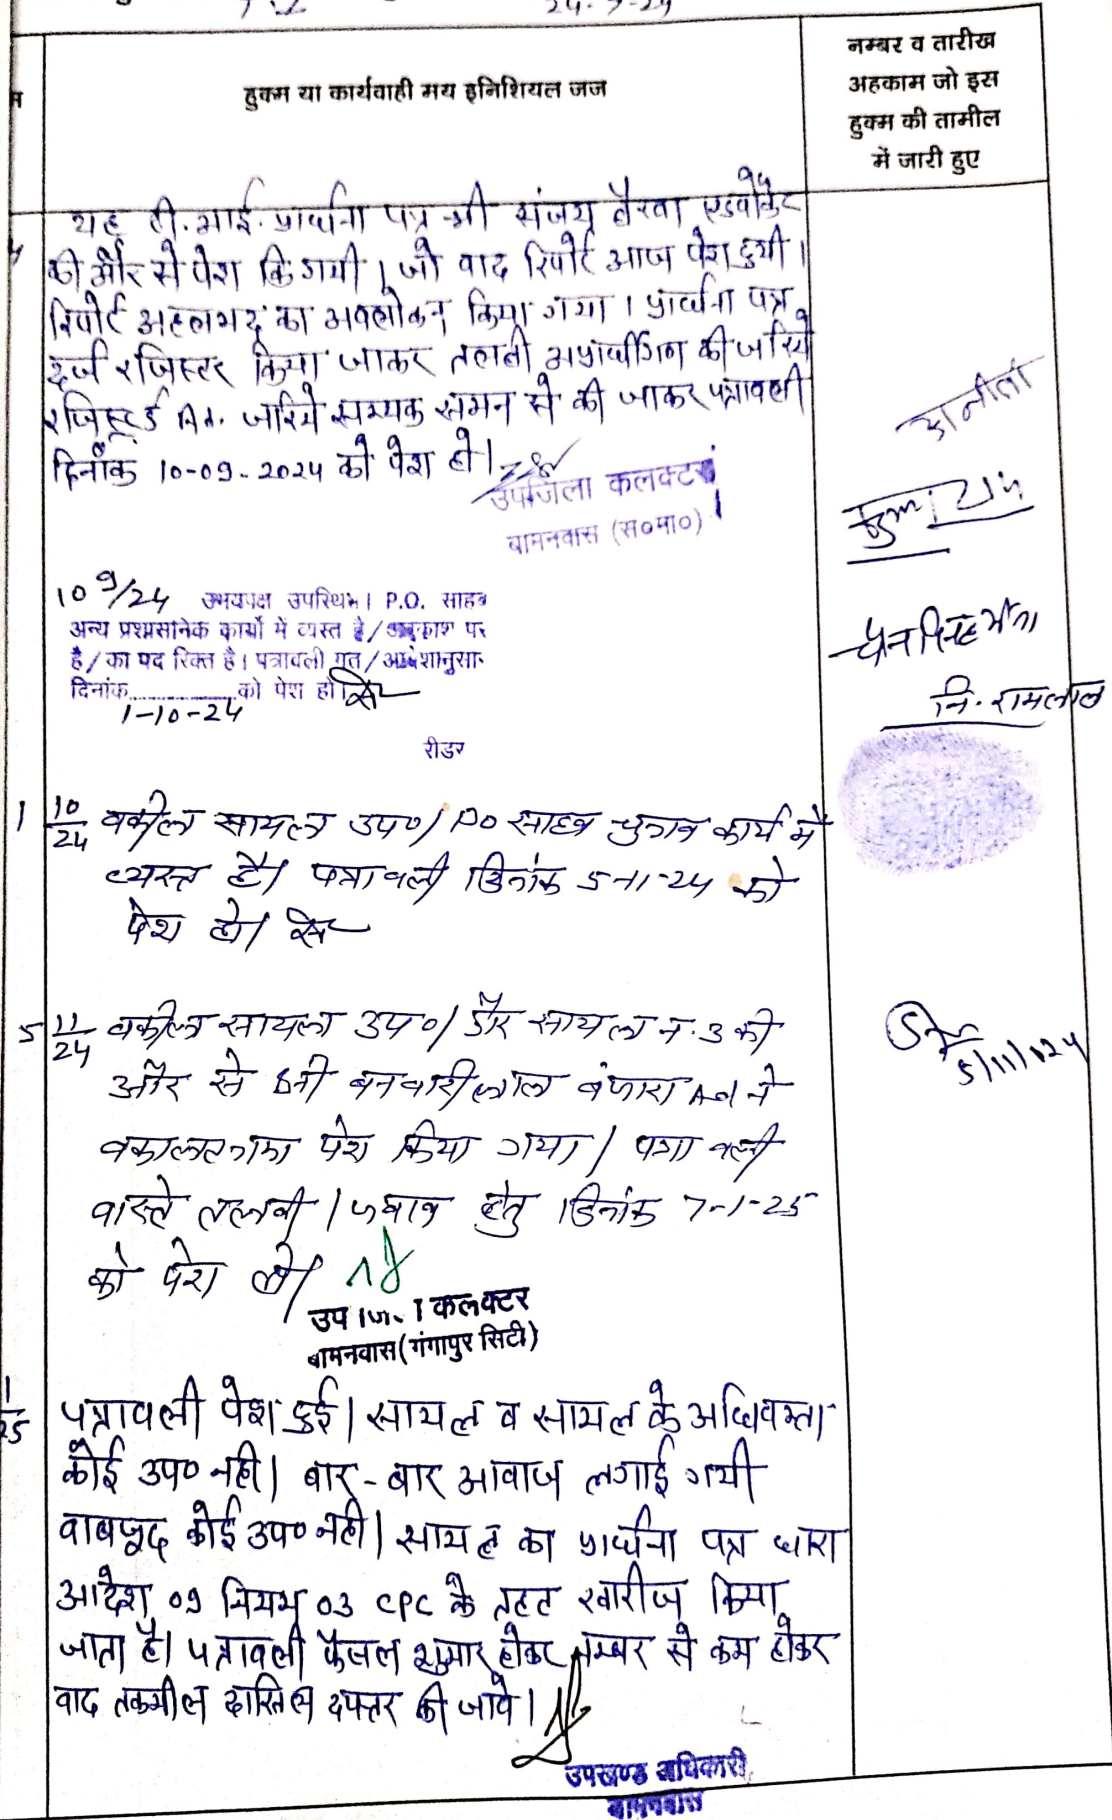 24-7-24
हुक्म या कार्यवाही मय इनिशियल जज
नम्बर व तारीख
अहकाम जो इस
हुक्म की तामील
में जारी हुए
यह टी.आई. प्रार्थना पत्र श्री संजय बैरवा एडवोकेट
की और से पेश कि गयी। जो वाद रिपोर्ट आज पेश हुयी।
रिपोर्ट अहलमद का अवलोकन किया गया। प्रार्थना पत्र
दर्ज रजिस्टर किया जाकर तलबी अप्रार्थीगण की जरिये
रजिस्टर्ड जरिये सम्यक समन से की जाकर पत्रावली
दिनाँक 10-09-2024 को पेश हो।
उपजिला कलक्टर
बामनवास (स०मा०)
अनीता
10 9/24 उभयपक्ष उपस्थित। P.O. साहब
अन्य प्रशासनिक कार्यो में व्यस्त है/अवकाश पर
है/का पद रिक्त है। पत्रावली गत/आदेशानुसार
दिनांक..............को पेश हो।
1-10-24
रीडर
नि. रामलाल
1 10/24 वकील सायल उप०/ PO साहब चुनाव कार्य मे
व्यस्त है। पत्रावली दिनांक 5-11-24 को
पेश हो।
5 11/24 वकील सायल उप०/ गैर सायल न. 3 की
और से श्री बनवारीलाल बंजारा Adv ने
वकालतनामा पेश किया गया। पत्रावली
वास्ते तलबी/जवाब हेतु दिनांक 7-1-25
को पेश हो।
5/11/24
उप जिला कलक्टर
बामनवास(गंगापुर सिटी)
1/25 पत्रावली पेश हुई। सायल व सायल के अधिवक्ता
कोई उप० नही। बार-बार आवाज लगाई गयी
वाबजूद कोई उप० नही। सायल का प्रार्थना पत्र धारा
आदेश 09 नियम 03 CPC के तहत खारीज किया
जाता है। पत्रावली फैजल शुमार होकर नम्बर से कम होकर
वाद तकमील दाखिल दफ्तर की जावे।
उपखण्ड अधिकारी
बामनवास